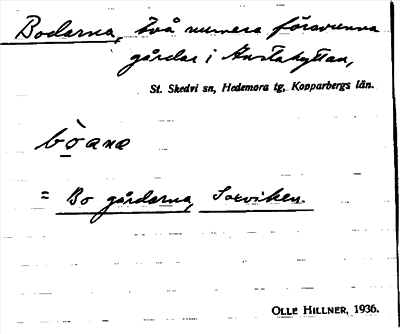 Bodarna, två numera försvunna
gårdar i Anstahyttan,
St. Skedvi sn, Hedemora tg, Kopparbergs län.
bo̲ana
= Bo gårdarna, Saxviken.
OLLE HILLNER, 1936.